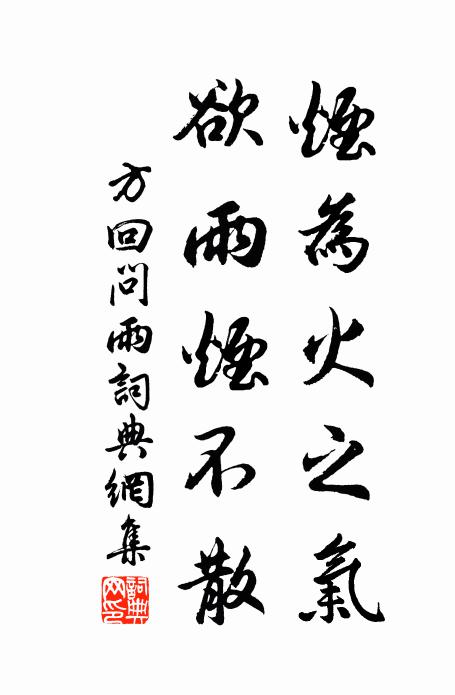 煙為火之氣
欲雨煙不散
方回問雨詞典網集
詞典網印